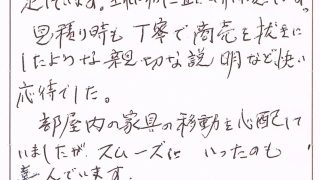 見積り時も丁寧で商売を抜きに
したような親切な説明など快い
応待でした。
部屋内の家具の移動を心配して
いましたが、スムーズに いったのも
喜んでいます。